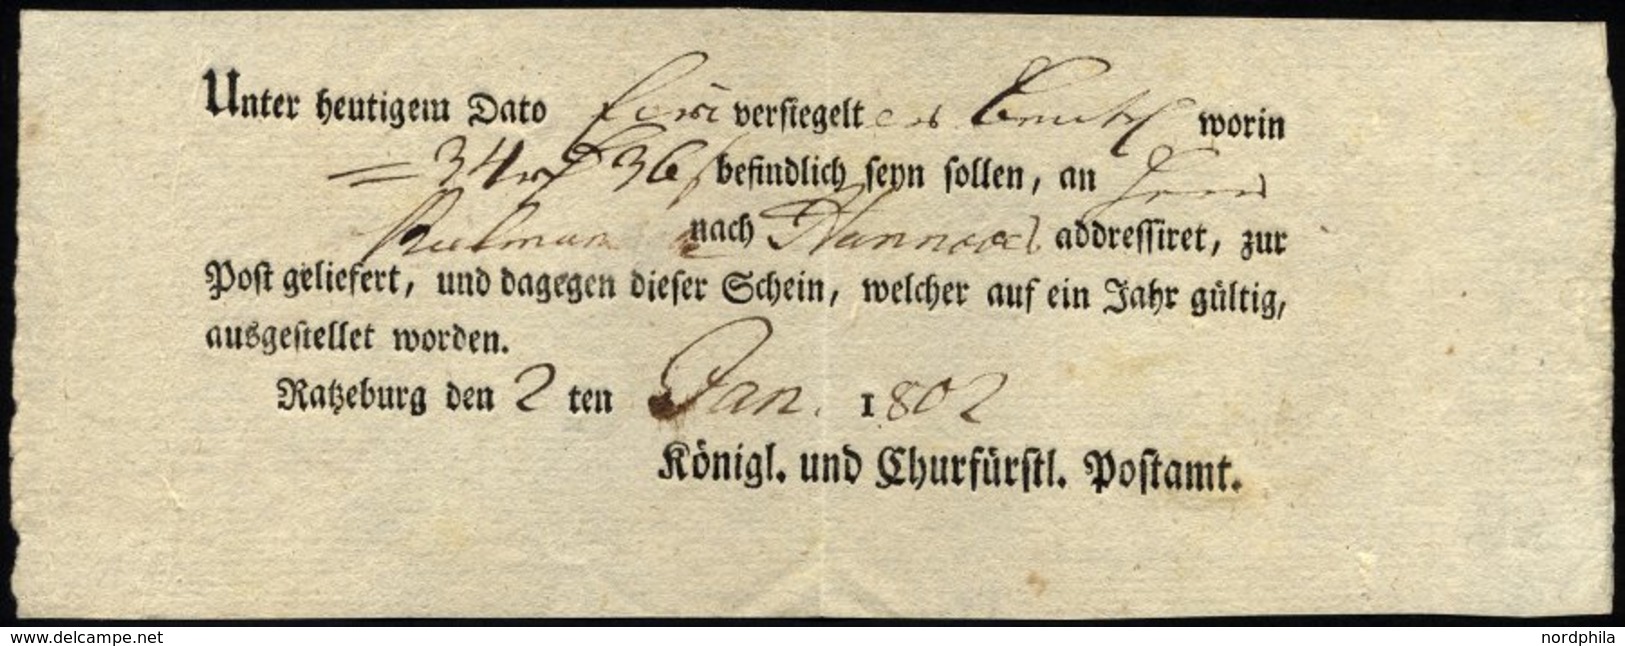 Unter heutigem Dato versiegelt es worin
= 34 36 befindlich seyn sollen, an
nach Hannover addressiret, zur
Post geliefert, und dagegen dieser Schein, welcher auf ein Jahr gültig,
ausgestellet worden.
Ratzeburg den 2 ten Jan. 1802
Königl. und Churfürstl. Postamt.
www.delcampe.net nordphila